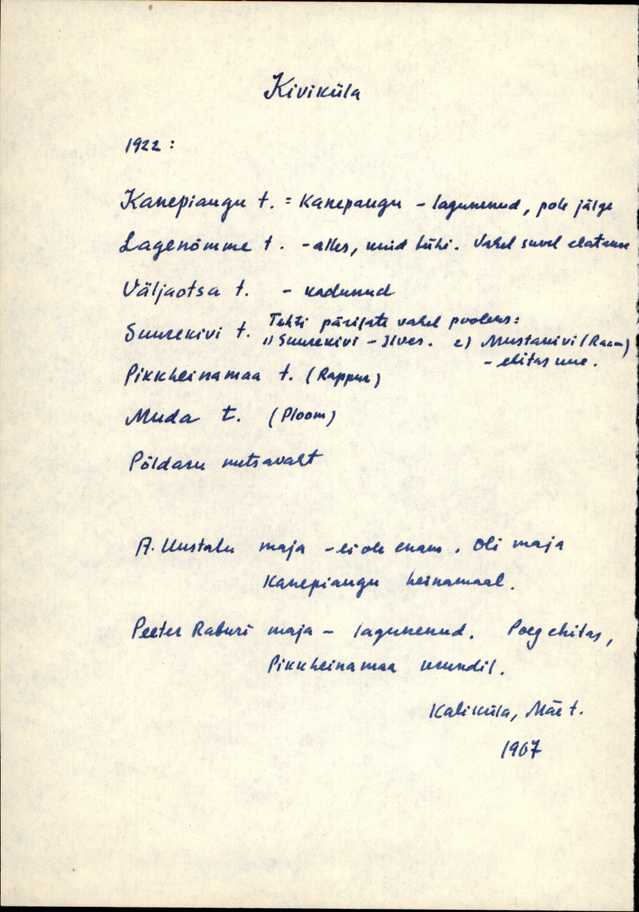 Kiviküla
1922:
Kanepiaugu t. = Kanepaugu - lagunenud, pole jälge
Lagenõmme t. - alles, nuid tühi. Vahel suvel elatakse
Väljaotsa t. - kadunud
Suurekivi t. Tehti pärijate vahel pooleks:
1) Suurekivi - Ilves. 2) Mustakivi (Raam)
- ehitas uue.
Pikkheinamaa t. (Rappu)
Muda t. (Ploom)
Põldaru metsavaht
A. Uustalu maja - ei ole enam. Oli maja
Kanepiaugu heinamaal.
Peeter Raburi maja - lagunenud. Poeg ehitas,
Pikkheinamaa krundil.
Kaliküla, Mäe t.
1967